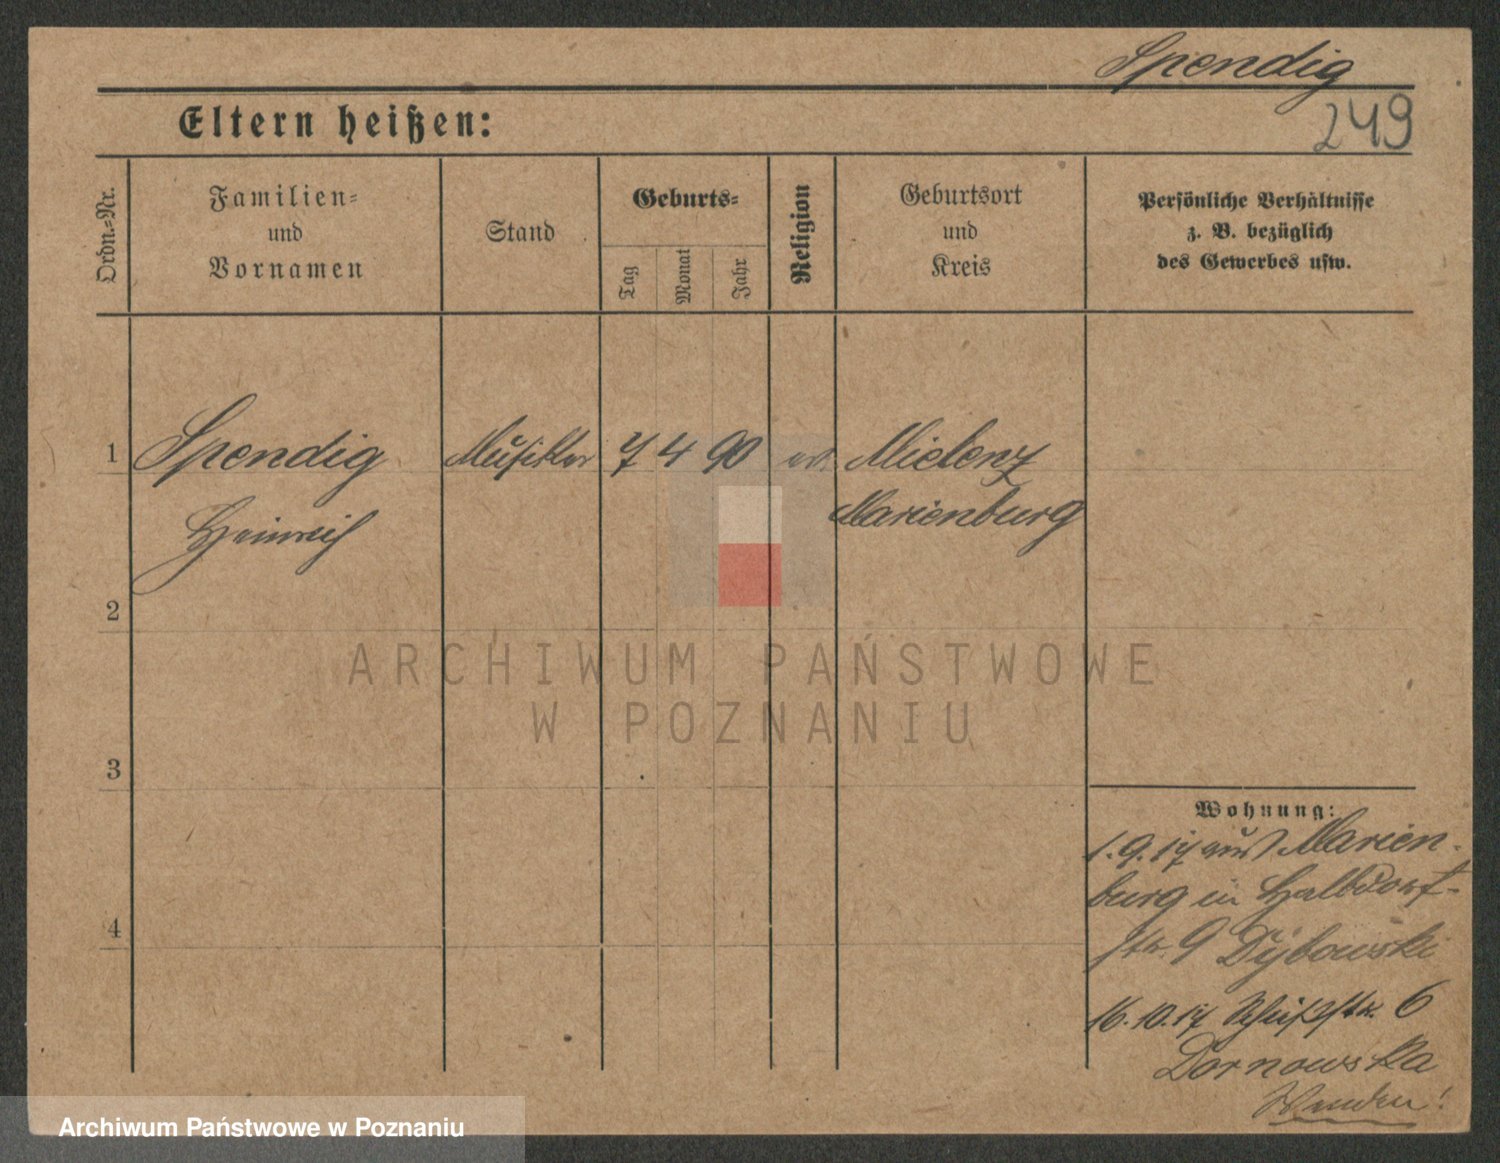 Spendig
249
Eltern heißen:
Ordn.-Nr.
Familien-
und
Vornamen
Stand
Geburts-
Tag
Monat
Jahr
Religion
Geburtsort
und
Kreis
Persönliche Verhältnisse
z. B. bezüglich
des Gewerbes usw.
1 Spendig Musiker 7 4 90 ev. Mielenz
Heinrich Marienburg
2
3
4
ARCHIWUM PAŃSTWOWE
W POZNANIU
Wohnung:
1.9.17 aus Marien-
burg in Halbdorf-
str. 9 Dybowski
16.10.17 6
Dornowska
Wenden!
Archiwum Państwowe w Poznaniu